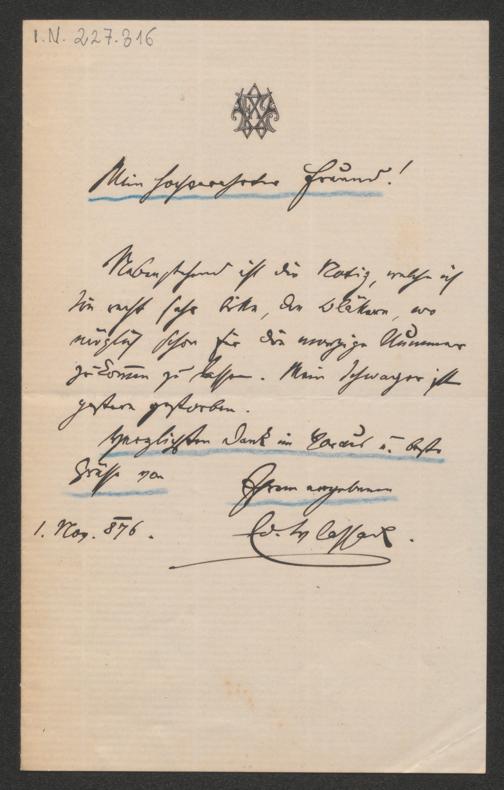 I.N. 227.316
Mein hochverehrter Freund!
Nebenstehend ist die Notiz, welche ich
Sie recht sehr bitte, den Blättern, wo
möglich schon für die morgige Nummer
zukommen zu lassen. Mein Schwager ist
gestern gestorben.
Herzlichsten Dank im Voraus u. beste
Grüsse von
Ihrem ergebenen
1. Nov. 876.
Ed. Wlassack.